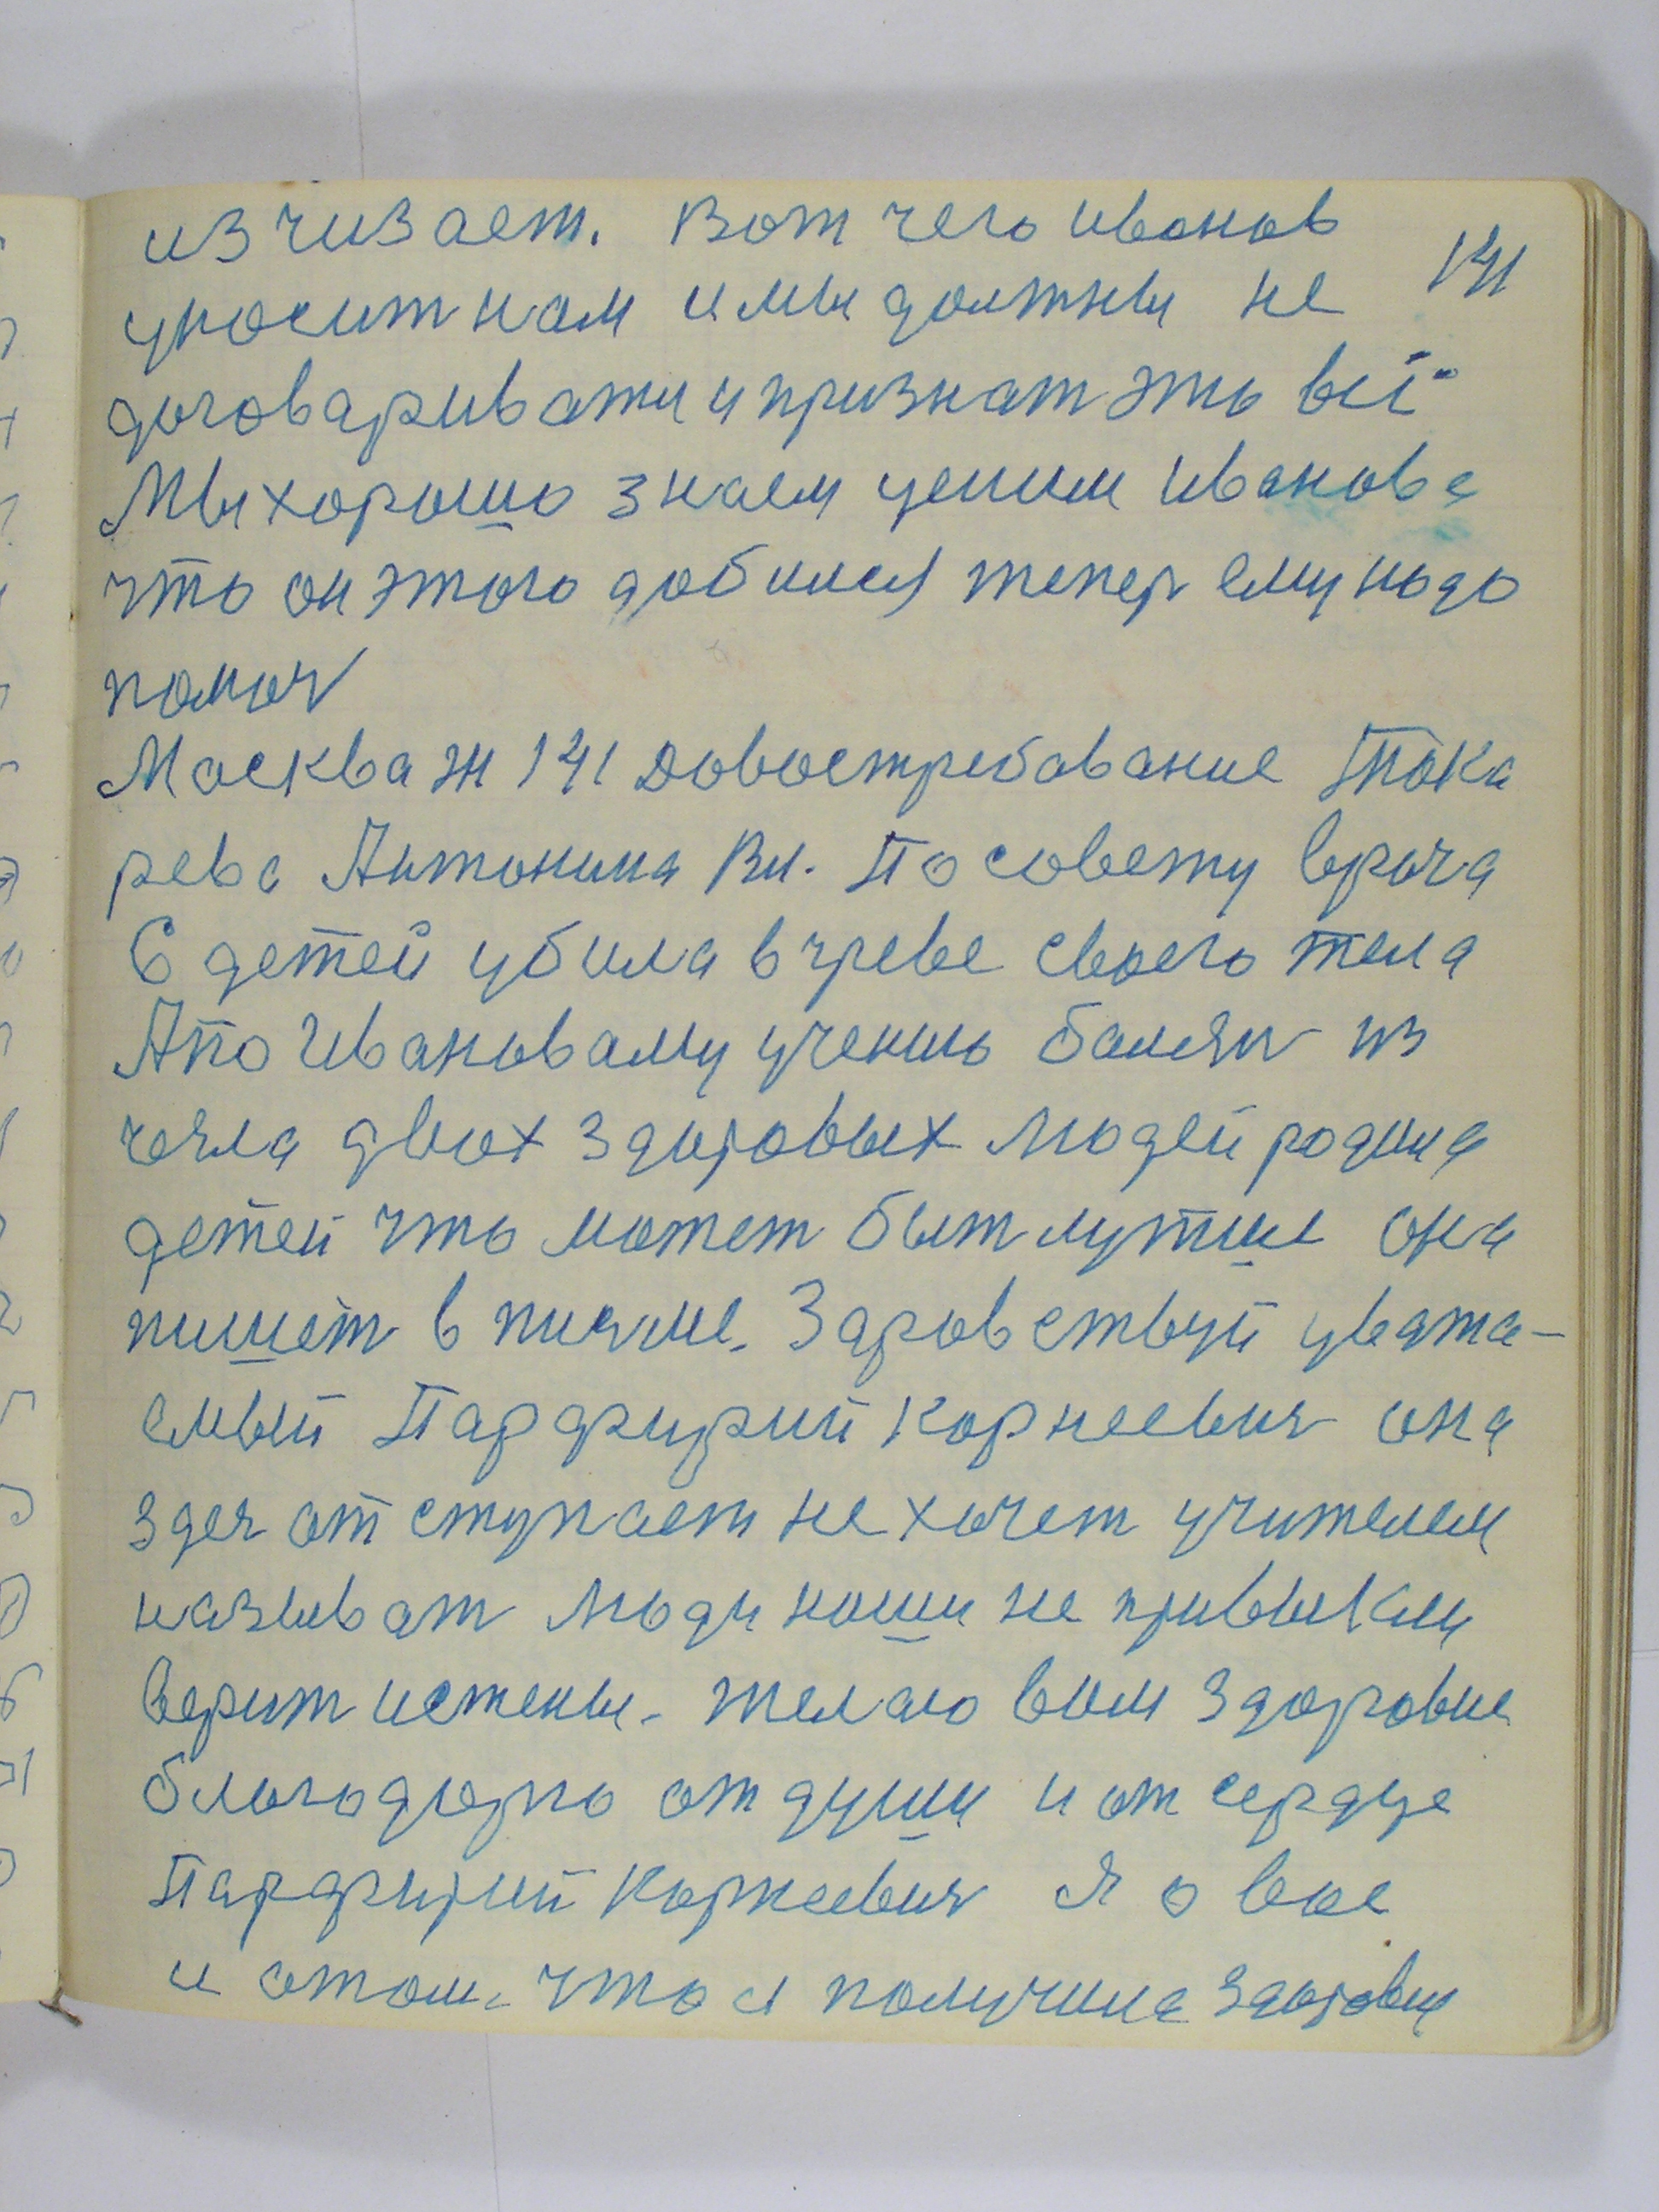 изчизает. Вот чего иванов
141
уносит нам и мы должны не
договаривати и признат это всё
Мы хорошо знаем ценим иванова
что он этого добился тепер ему надо
помоч
Москва Ж 141 довостребование Тока
рева Антонина Вл. По совету врача
6 детей убила в чреве своего тела
А по Ивановаму учению
чесла двох здоровых людей родила
детей что может быт лутше она
пишет в писме. Здровствуй уважа-
емый Парфирий Корнеевич она
здес отступает не хочет учителем
называт люди наши не привыкли
верит истены. желаю вам здоровие
благодарю от души и от сердце
Парфирий Корнеевич я о вас
и отом. что я получила здоровие